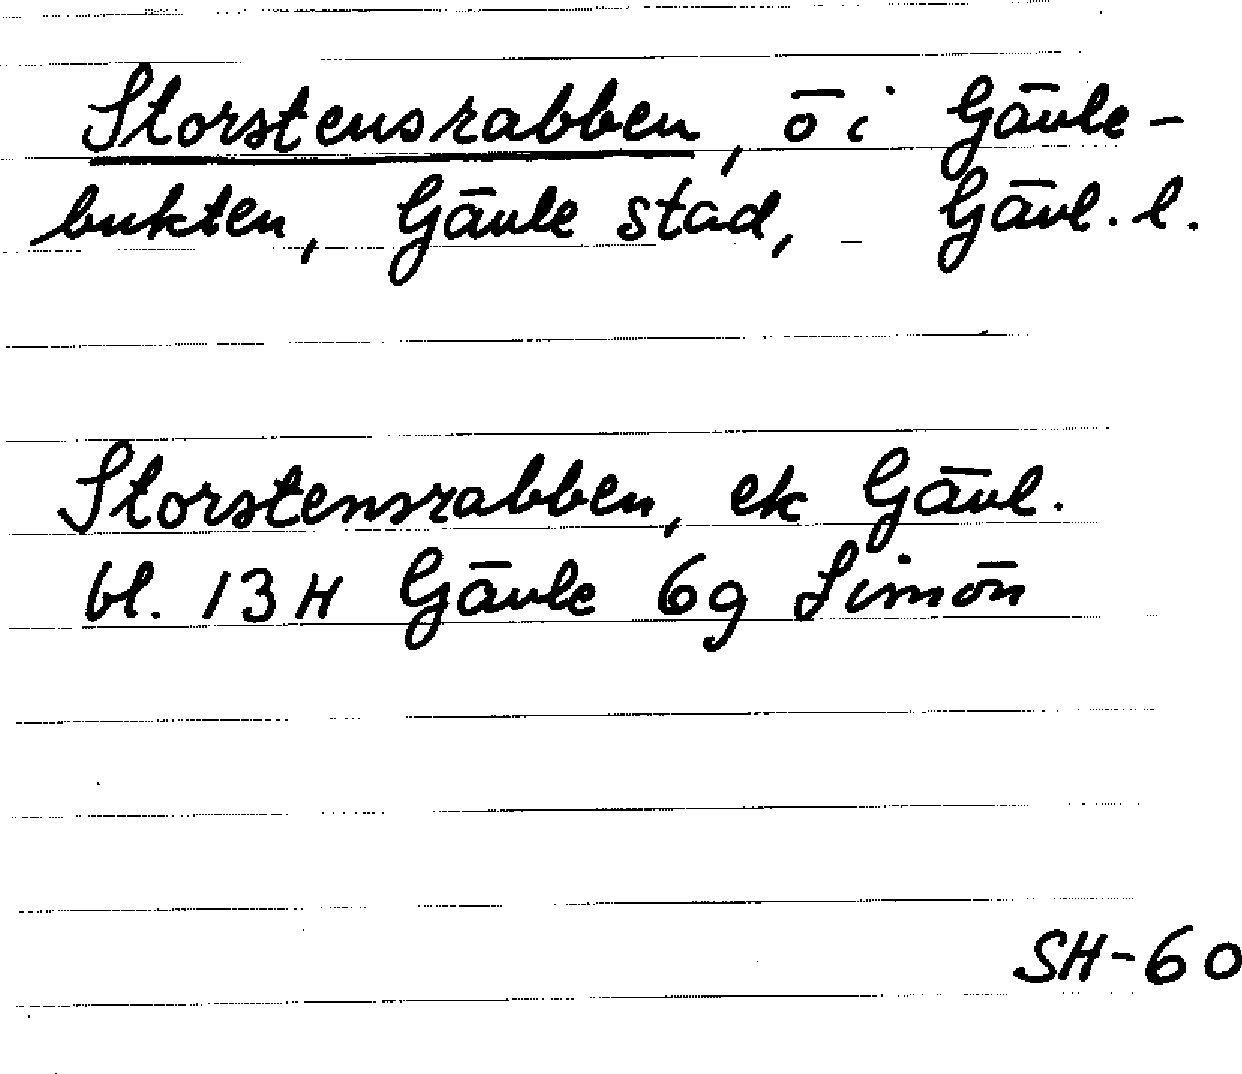 Storstensrabben, ö i Gävle-
bukten, Gävle stad, Gävl. l.
Storstensrabben, ek Gävl.
bl. 13 H Gävle 6g Limön
SH-60